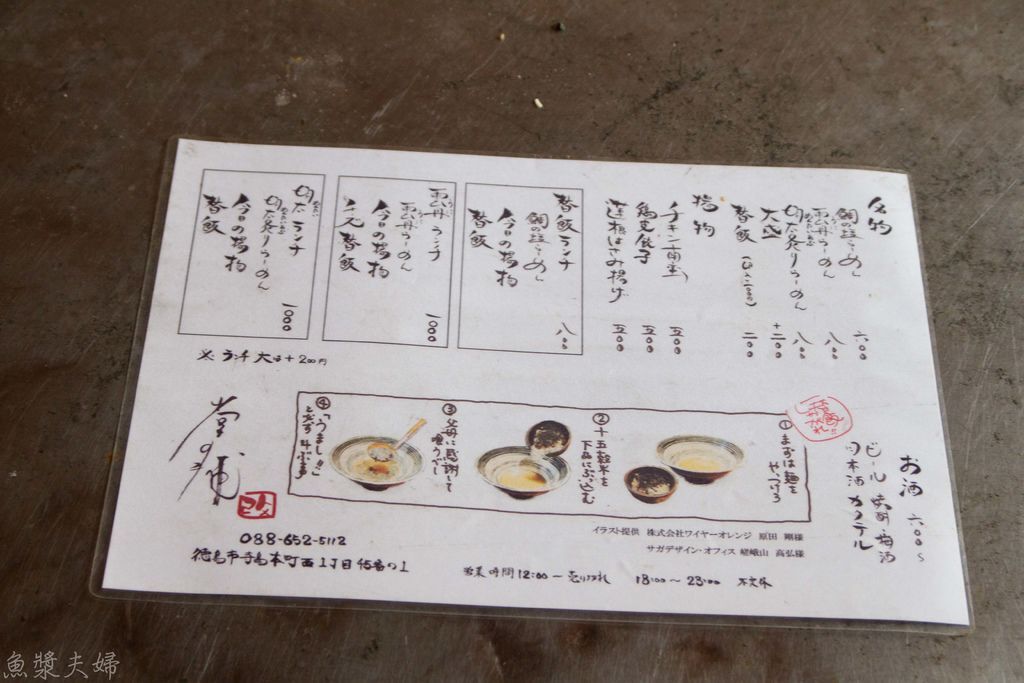 名物
鯛の塩らーめん 六〇〇
雲丹らーめん 八〇〇
明太炙りらーめん 八〇〇
大盛 +二〇〇
替飯 二〇〇
揚物
チキン南蛮 五〇〇
蓮根はさみ揚げ 五〇〇
替飯ランチ
鯛の塩らーめん
今日の揚物
替飯
八〇〇
雲丹ランチ
雲丹らーめん
今日の揚物
替飯
1000
明太ランチ
明太炙りらーめん
今日の揚物
替飯
1000
※ ランチ大は+200円
お酒 六〇〇
ビール 焼酎 梅酒
日本酒 カクテル
① まずは麺を
やっつけろ
② 十五穀米を
下品にぶっ込む
③ 父母に感謝して
喰うべし
④ 「うまし!!」
と必ず叫ぶ事
イラスト提供 株式会社ワイヤーオレンジ 原田 剛様
サガデザイン・オフィス 嵯峨山 高弘様
堂の浦
088-652-5112
徳島市寺島本町西1丁目45番の1
営業時間12:00〜売り切れ 18:00〜23:00 不定休
魚漿夫婦